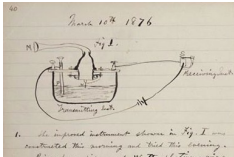 40
March 10th 1876
Fig. 1.
M
Receiving Inst.
Transmitting Inst.
1. The improved instrument shown in Fig. I was
constructed this morning and tried this evening.